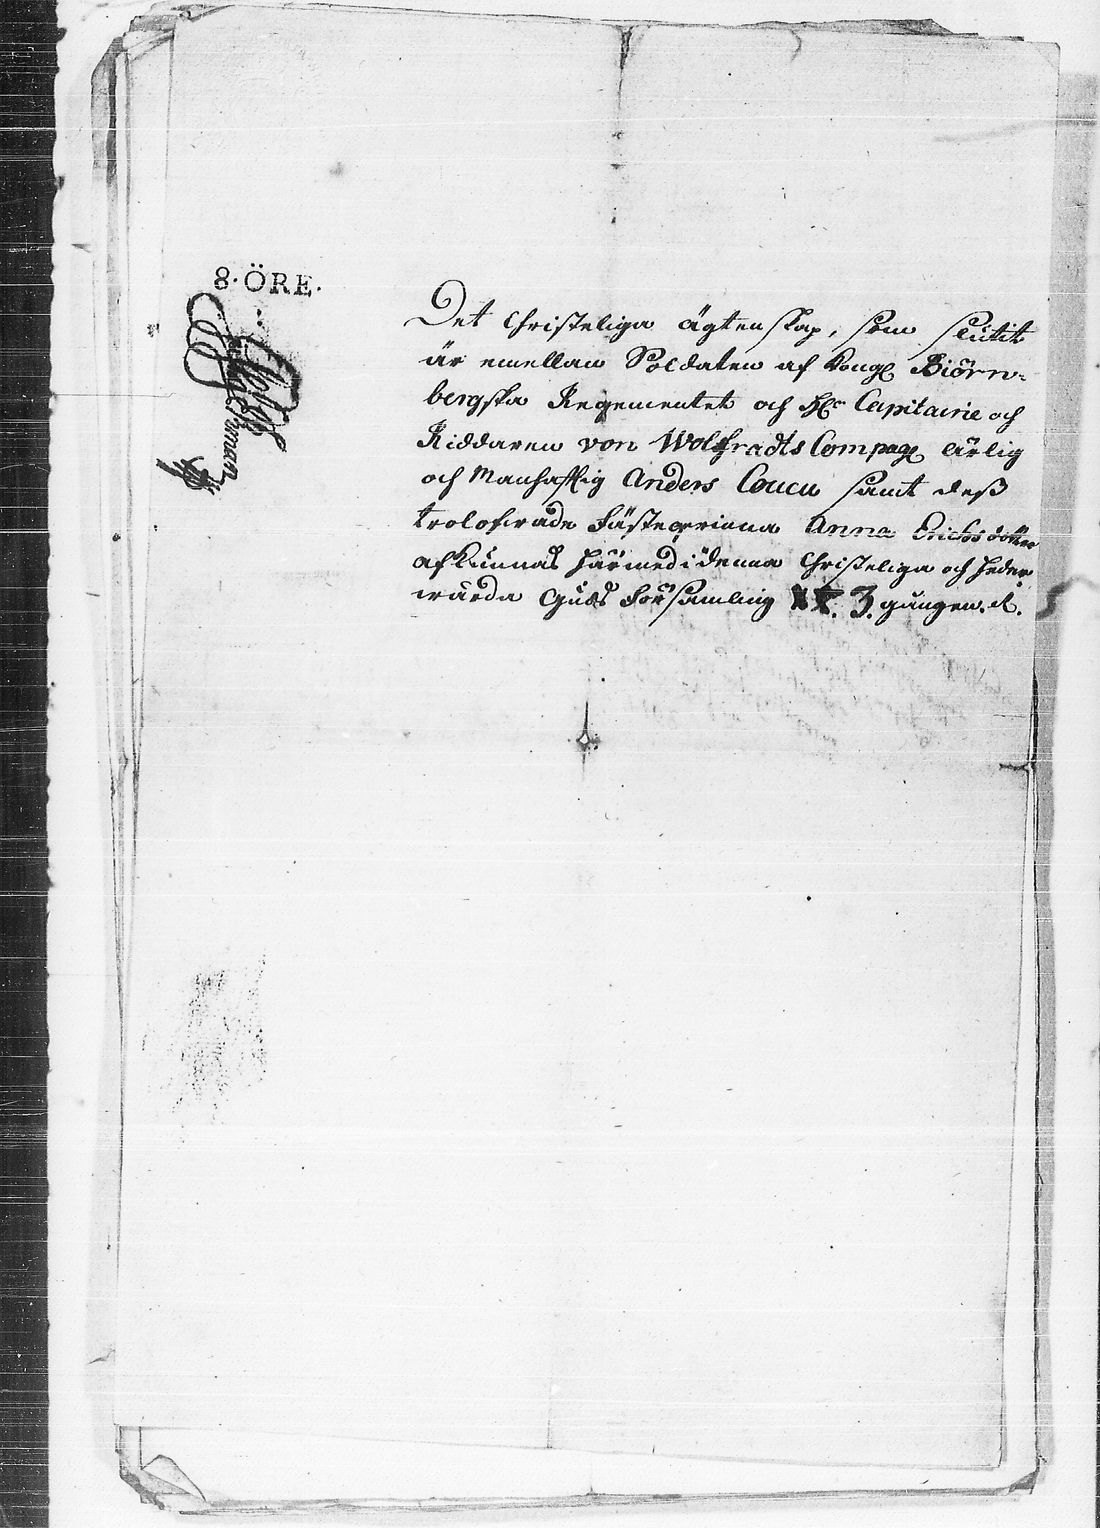 8. ÖRE.
Det Christeliga ägtenskap, som slutit
är emellan Soldaten af Kongl Biörne-
bergska Regementet och Hr Capitaine och
Riddaren von Wolfradts Compag ärlig
och Manhafftig Anders Coucu samt dess
trolofwade Fästeqwinna Anna Erichsdotter
afkunnas härmed i denna Christeliga och heder
wärda Guds Församling 3. gången. etc.